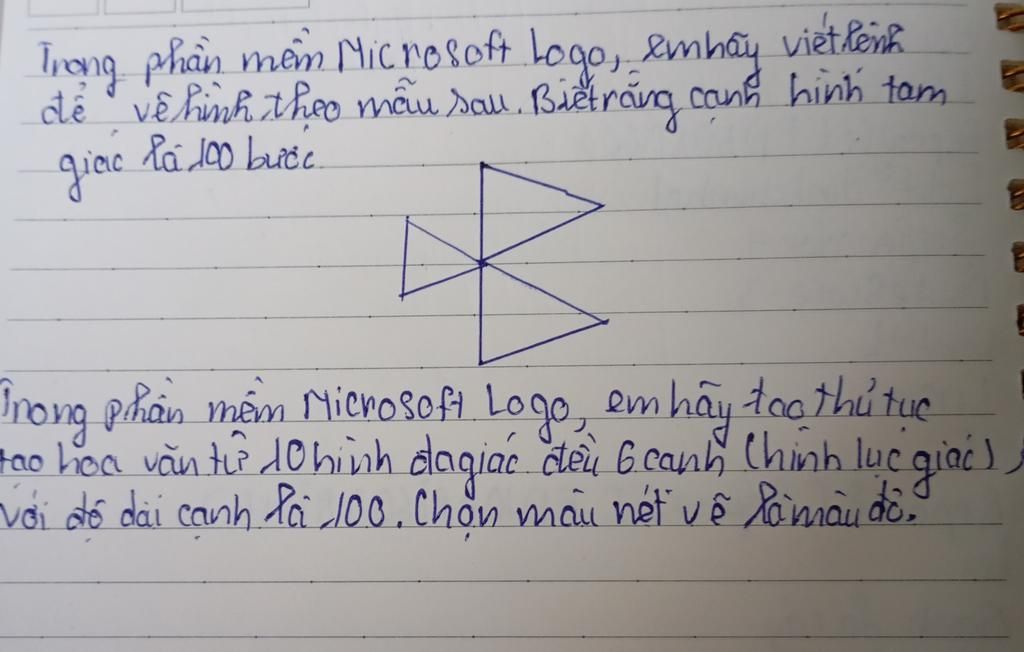 Trong phần mềm Microsoft Logo, em hãy viết lệnh
để vẽ hình theo mẫu sau. Biết rằng cạnh hình tam
giác là 100 bước.
Trong phần mềm Microsoft Logo, em hãy tạo thủ tục
tạo hoa văn từ 10 hình đa giác đều 6 cạnh (hình lục giác),
với độ dài cạnh là 100. Chọn màu nét vẽ là màu đỏ.